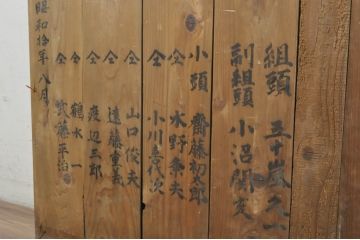 組頭 五十嵐久一
副組頭 小沼関亥
小頭 齋藤初太郎
仝 水野粂夫
仝 小川喜代次
仝 山口俊夫
仝 遠藤重義
仝 渡辺三郎
仝 鶴水一
仝 武藤平治
昭和拾年八月